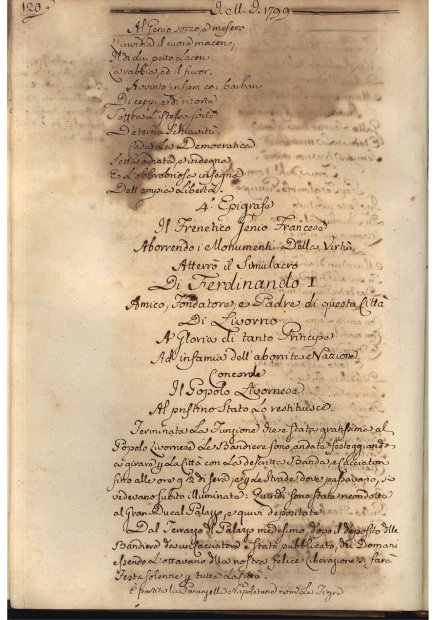 120
D. M. D. 1799
Al Genio sozzo, e mesero
L'invidia il cuore
Il di cui petto
La rabbia, ed il furor.
Avvinto insiem co i barbari
Di ceppi, e di ritorte
Soffra l'istessa sorte
D'eterna Schiavitù.
Cada la Democratica
Setta odiata, e indegna
E l'obbrobriosa insegna
Dell'empia libertà.
4.ª Epigrafe
Il Frenetico Genio Francese
Aborrendo i Monumenti Della Virtù
Atterrò il Simulacro
Di Ferdinando I
Amico, Fondatore, e Padre di questa Città
Di Livorno
A Gloria di tanto Principe
Ad infamia dell'aborrita Nazione
Concorde
Il Popolo Livornese
Al pristino Stato lo restituisce.
Terminata La Funzione che è stata gratissima al
Popolo Livornese Le Bandiere sono andate festeggiando
a girare La Città con La descritta Banda e Cacciatori
fino alle ore 9 1/2 di sera, e Le Strade dove passavano, si
vedevano subito illuminate: Quindi sono state
al Gran Ducal Palazzo, e quivi depositate
Dal Terrazzo di Palazzo medesimo dopo il deposito delle
Bandiere da un Cacciatore è stato pubblicato, che Domani
essendo L'ottavario della nostra felice Liberazione vi sarà
Festa solenne tutta La Città.
È partito Napoletano Tigre